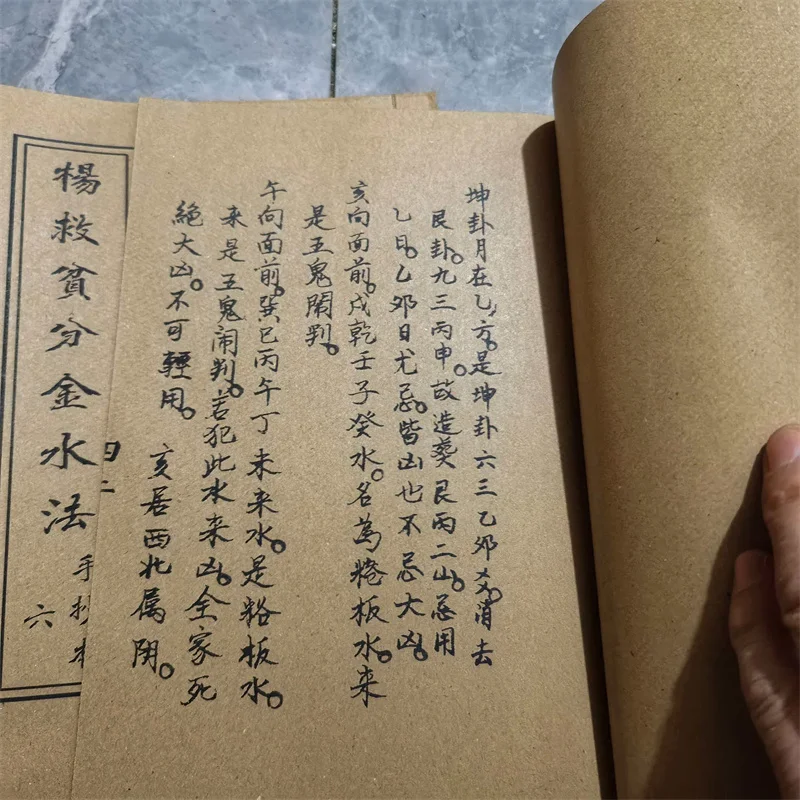 坤卦月在乙方。是坤卦六三乙夘爻。消去
艮卦。九三丙申。故造葬艮丙二山。忌用
乙日。乙夘日尤忌。皆凶也不忌大凶。
亥向面前。戌乾壬子癸水。名為格板水。来
是五鬼閙判。
午向面前。巽巳丙午丁未来水。是格板水。
来是五鬼闹判。若犯此水来凶。全家死
絕大凶。不可輕用。
亥居西北属阴。
四二
楊救貧分金水法
手抄本
六